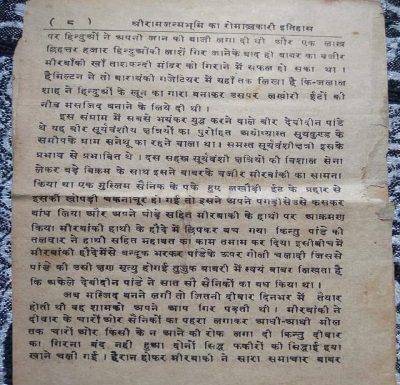 ( ८ ) श्रीरामजन्मभूमि का रोमाञ्चकारी इतिहास
पर हिन्दुओं ने अपनी जान की बाजी लगा दी थी और एक लाख
छिहत्तर हजार हिन्दुओंकी लाशें गिर जानेके बाद हो बाबर का बजीर
मीरबाँकी खाँ ताशकन्दी मंदिर को गिराने में सफल हो सका था ।
हैमिल्टन ने तो बाराबंकी गजेटियर में यहाँ तक लिखा है कि-जलाल
शाह ने हिन्दुओं के खून का गारा बनाकर उसपर लखोरी ईंटों की
नीव मसजिद बनाने के लिये दी थी ।
इस संग्राम में सबसे भयंकर युद्ध करने वाले बीर देवीदीन पांडे
थे यह बीर सूर्यवंशीय क्षत्रियों का पुरोहित अयोध्यास्त सूर्यकुण्ड के
समीपके ग्राम सनेथू का रहने वाला था । समस्त सूर्यवंशीक्षत्री इसके
प्रभाव से प्रभावित थे । दस सहस्र सूर्यवंशी क्षत्रियों की विशाल सेना
लेकर बड़े बिक्रम के साथ इसने बाबरके बजीर मीरबाँकी का सामना
किया था एक मुस्लिम सैनिक के फेंके हुए लखौड़ी ईंट के प्रहार से
इसकी खोपड़ी चकनाचूर हो गई तो इसने अपने पगड़ीसे उसे कसकर
बांध लिया और अपने घोड़े सहित मीरबाँकी के हाथी पर आक्रमण
किया मीरबाँकी हाथी के हौदे में छिपकर बच गया किन्तु पांडे की
तलवार ने हाथी सहित महावत का काम तमाम कर दिया इसीबीच में
मीरबांकी हौदेमेंसे बन्दूक भरकर पांडेके ऊपर गोली चलादी जिससे
पांडे की उसी क्षण मृत्यु होगई तुजुक बाबरी में स्वयं बाबर लिखता है
कि अकेले देवीदीन पांडेय ने सात सौ सैनिकों का बध किया था ।
अब मस्जिद बनने लगी तो जितनी दीवार दिनभर में तैयार
होती थी वह शामको अपने आप गिर पड़ती थी । मीरबाँकी ने
दीवार के चारों ओर सैनिकों का पहरा लगाकर आधी-आधी मील
तक चारों ओर किसी के न आने की रोक लगा दी किन्तु दीवार
का गिरना बंद नहीं हुआ दोनों सिद्ध फकीरों की सिद्धाई हवा
खाने चली गई । हैरान होकर मीरबाँकी ने सारा समाचार बाबर